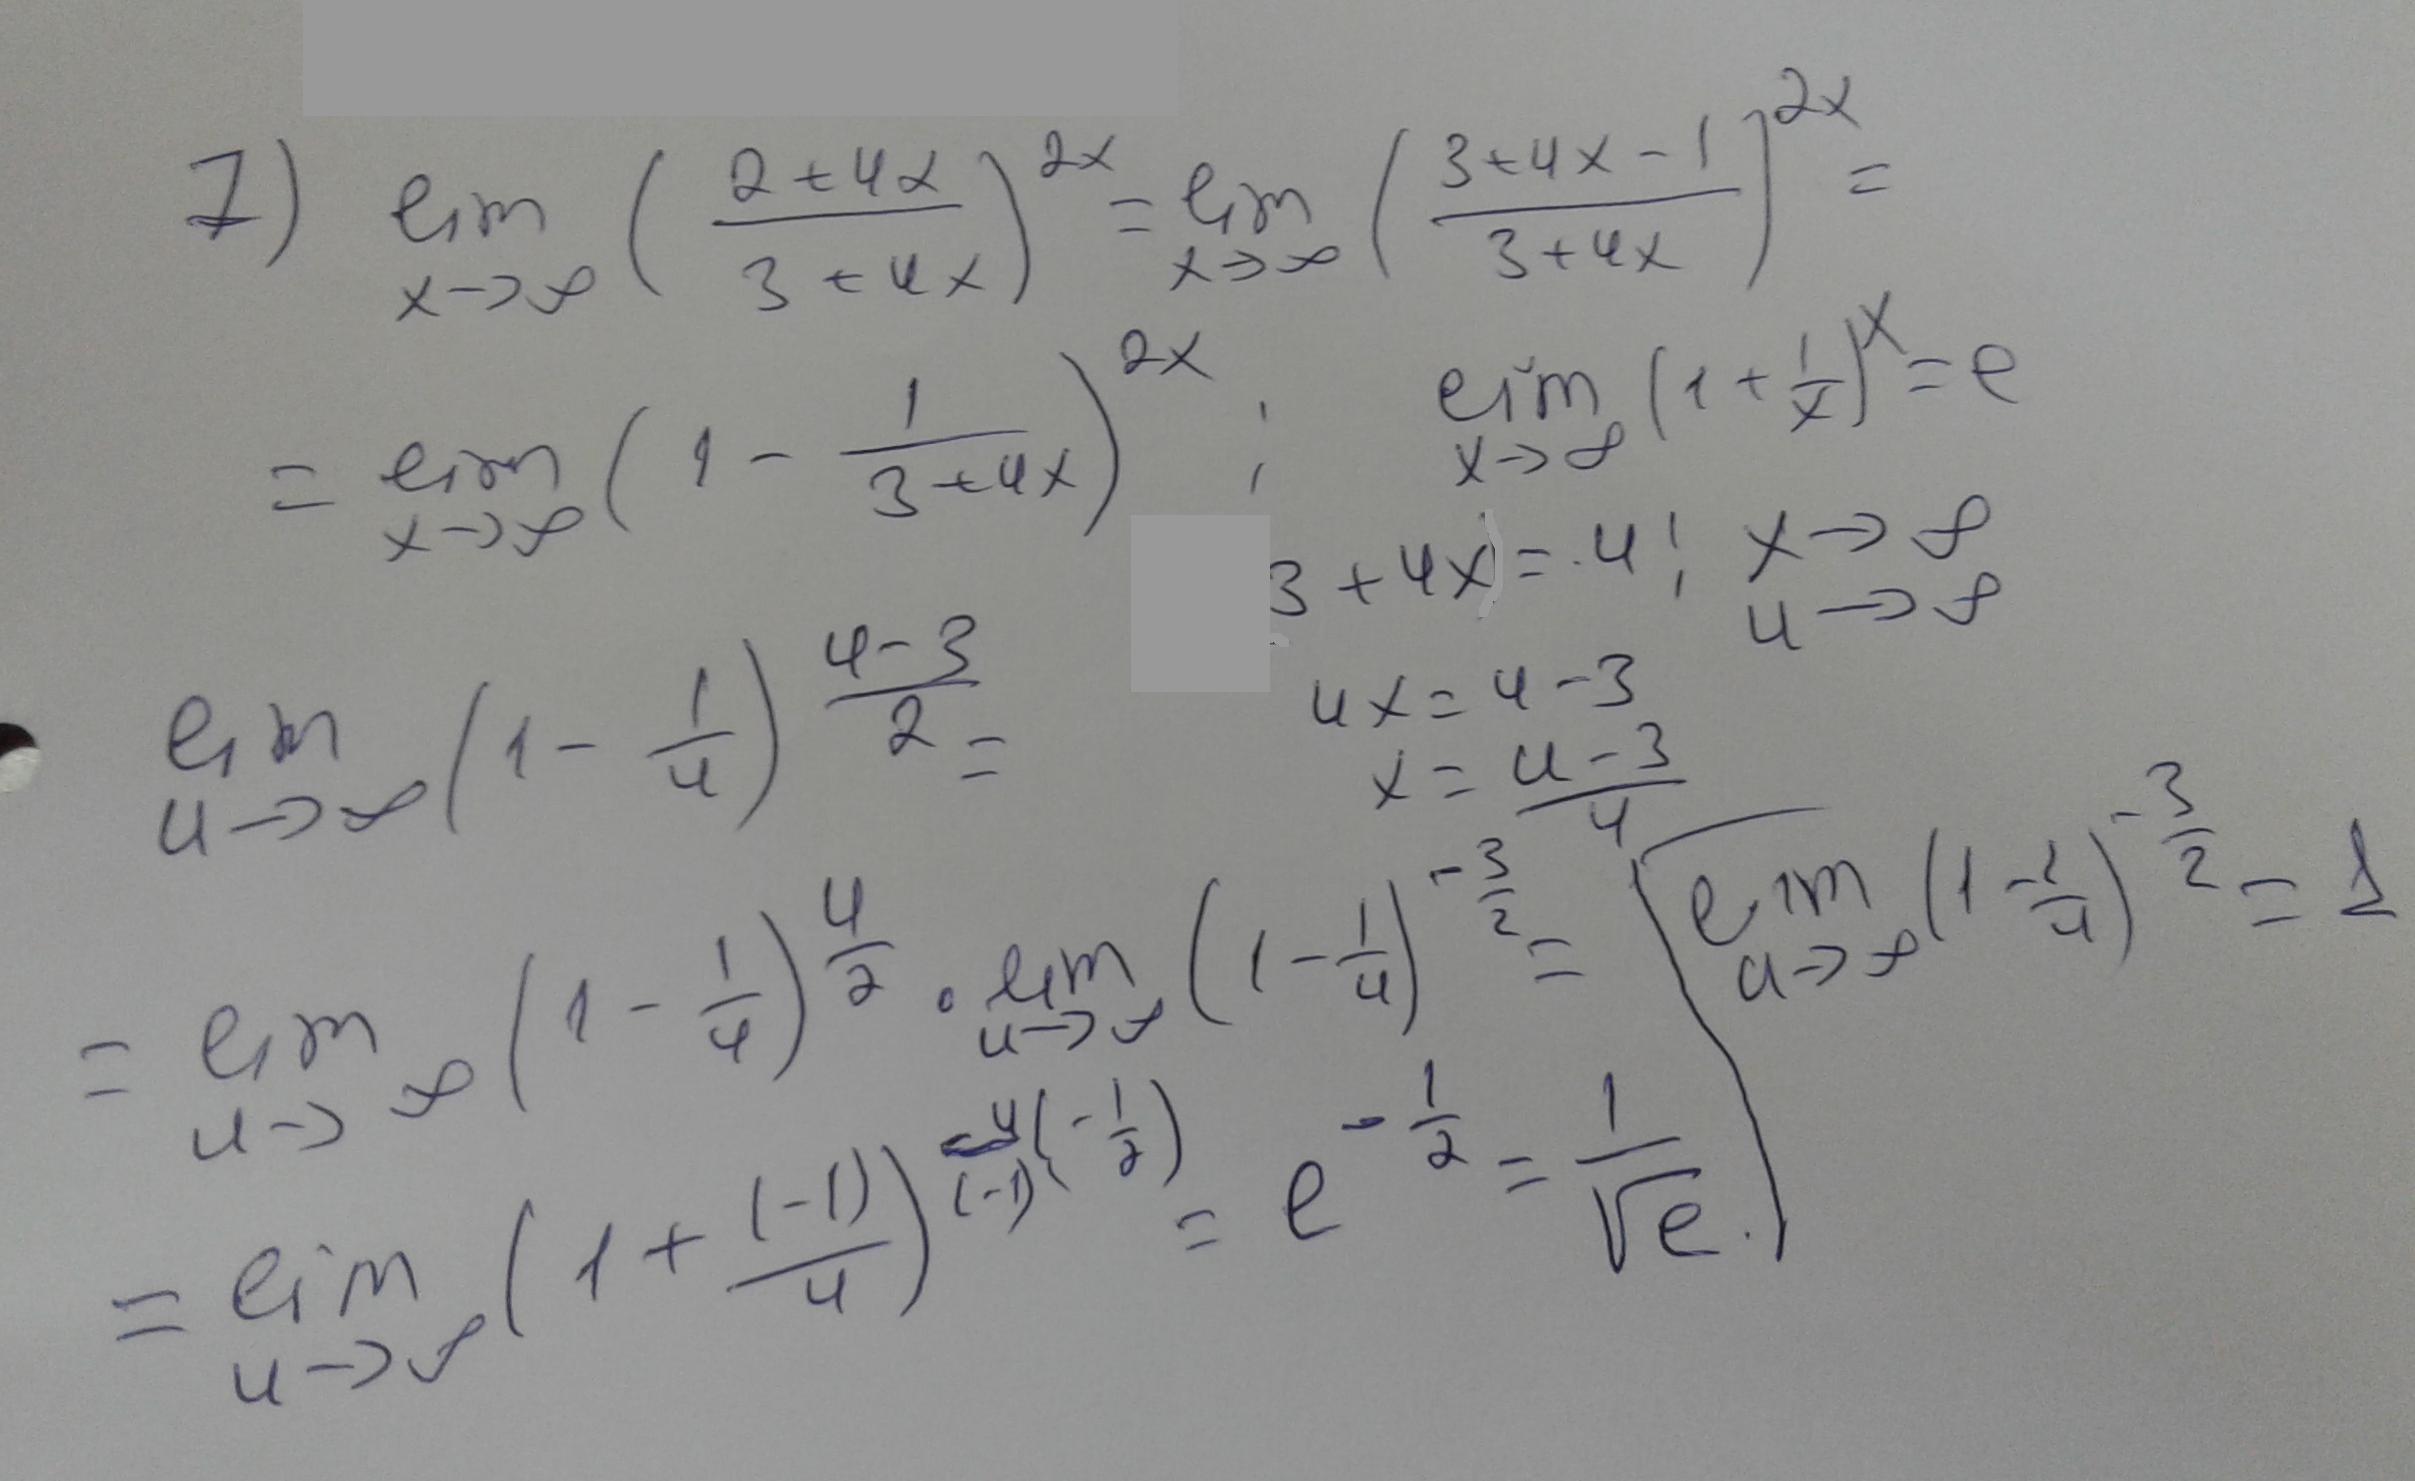 7) lim x→∞ ( (2+4x)/(3+4x) )^2x = lim x→∞ ( (3+4x-1)/(3+4x) )^2x =
= lim x→∞ ( 1 - 1/(3+4x) )^2x ; lim x→∞ (1+1/x)^x = e
3+4x = u ; x→∞
u→∞
4x = u-3
x = (u-3)/4
lim u→∞ (1 - 1/u)^((u-3)/2) =
= lim u→∞ (1 - 1/u)^(u/2) · lim u→∞ (1 - 1/u)^(-3/2) =
lim u→∞ (1 - 1/u)^(-3/2) = 1
= lim u→∞ (1 + (-1)/u)^(u/(-1) (-1/2)) = e^(-1/2) = 1/√e.